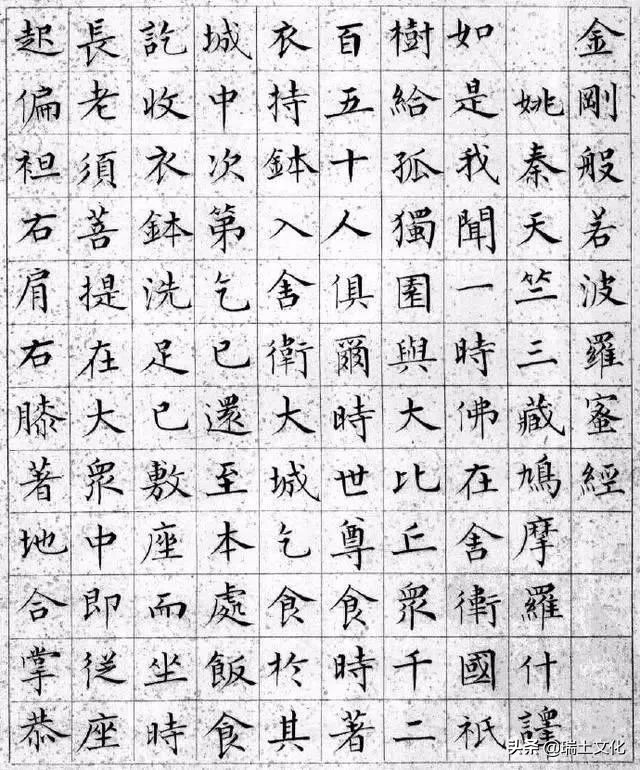 金剛般若波羅蜜經
姚秦天竺三藏鳩摩羅什譯
如是我聞一時佛在舍衛國祇
樹給孤獨園與大比丘眾千二
百五十人俱爾時世尊食時著
衣持鉢入舍衛大城乞食於其
城中次第乞已還至本處飯食
訖收衣鉢洗足已敷座而坐時
長老須菩提在大眾中即從座
起偏袒右肩右膝著地合掌恭
头条 @瑞土文化